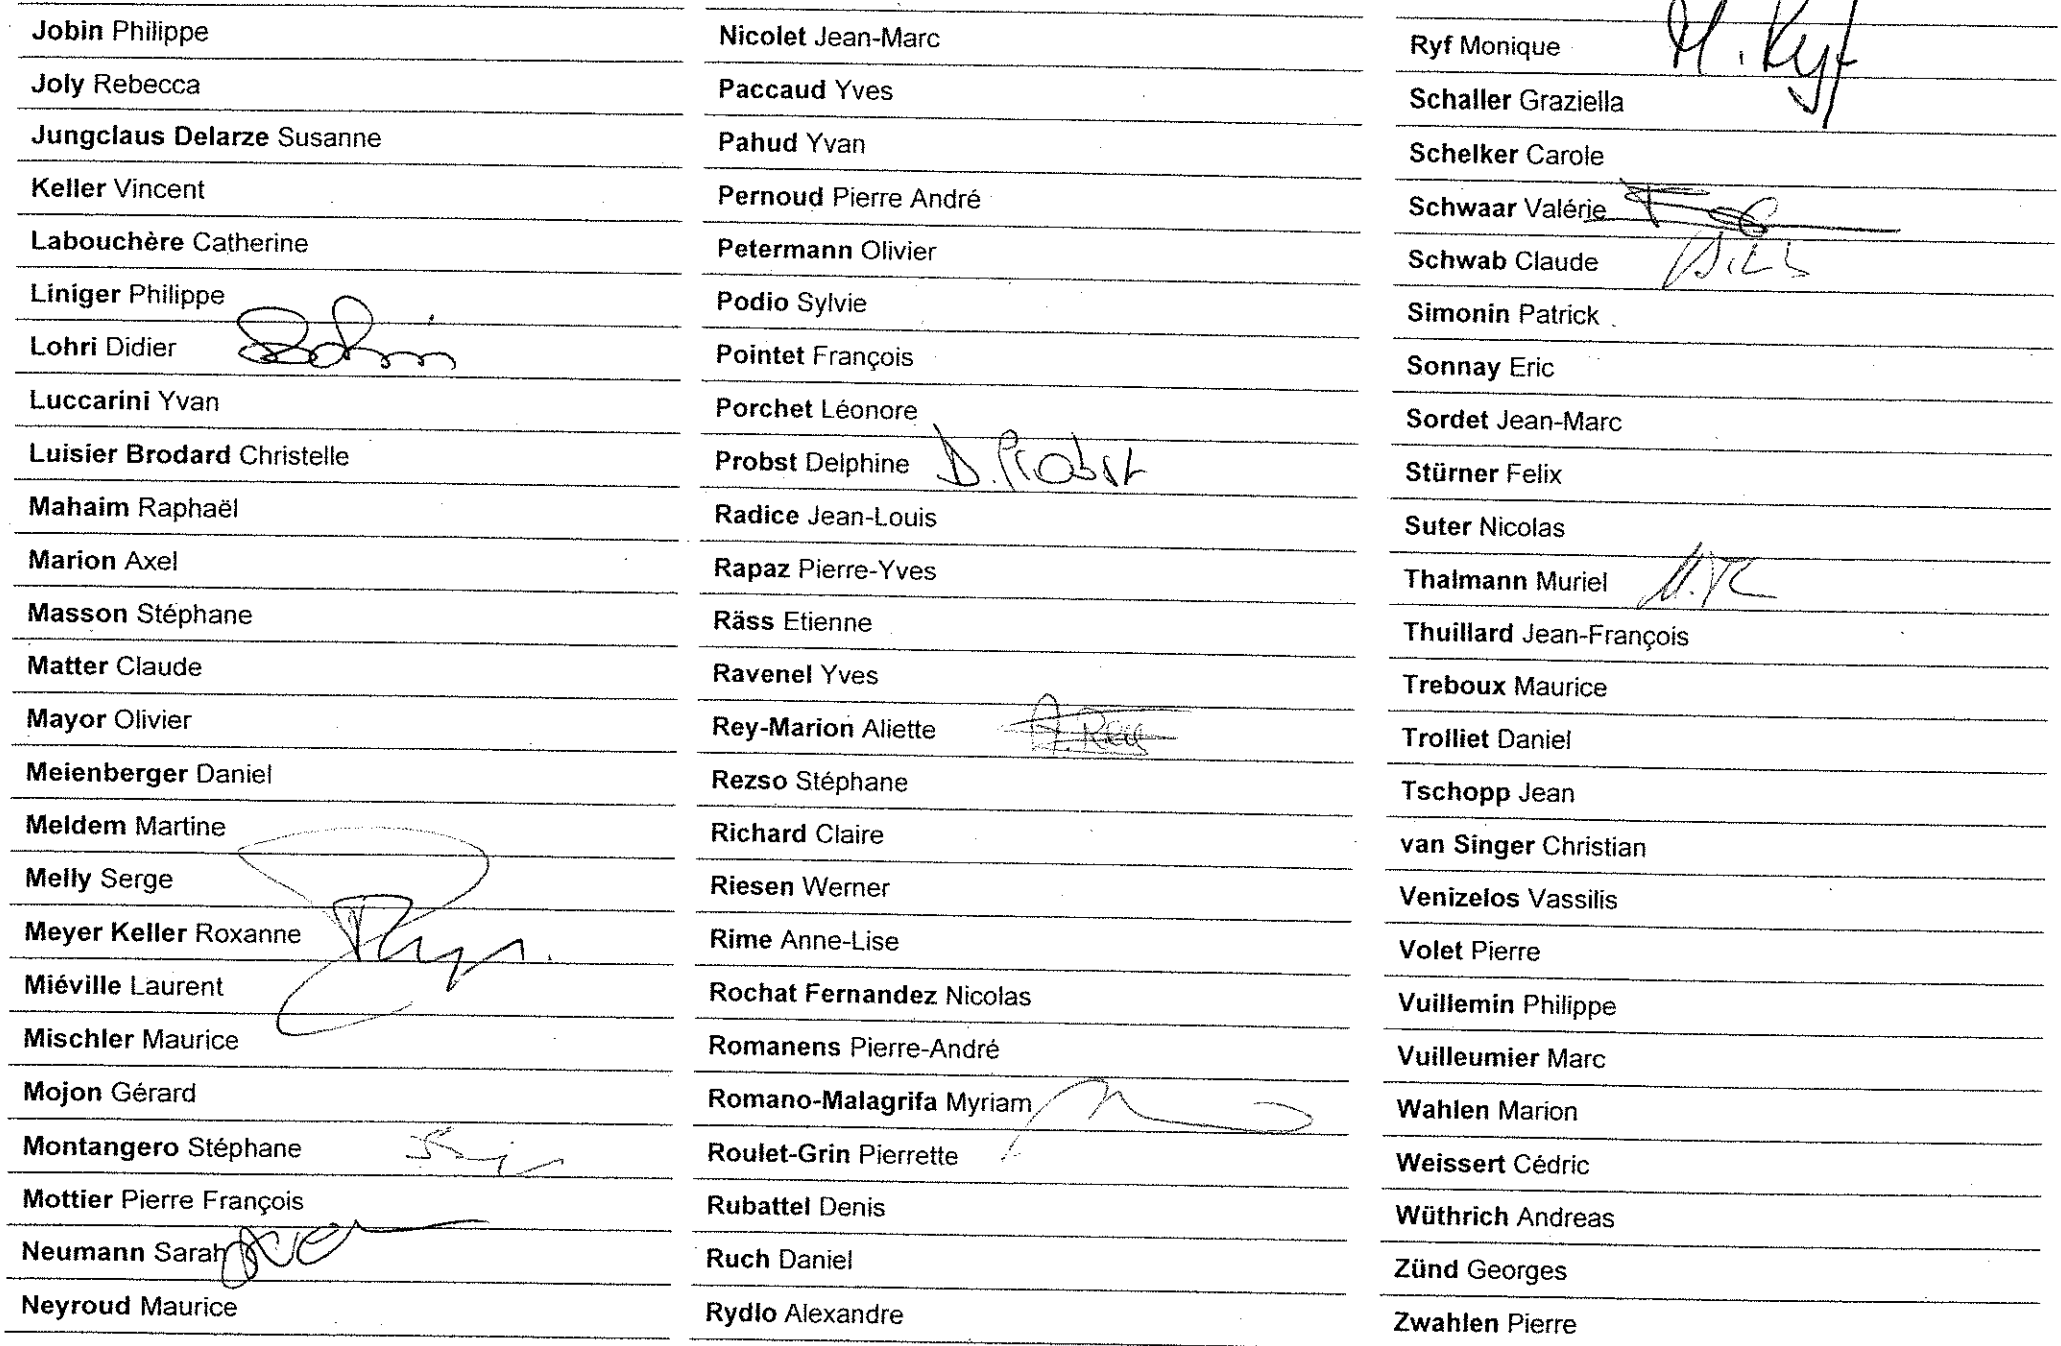 Jobin Philippe
Joly Rebecca
Jungclaus Delarze Susanne
Keller Vincent
Labouchère Catherine
Liniger Philippe
Lohri Didier
Luccarini Yvan
Luisier Brodard Christelle
Mahaim Raphaël
Marion Axel
Masson Stéphane
Matter Claude
Mayor Olivier
Meienberger Daniel
Meldem Martine
Melly Serge
Meyer Keller Roxanne
Miéville Laurent
Mischler Maurice
Mojon Gérard
Montangero Stéphane
Mottier Pierre François
Neumann Sarah
Neyroud Maurice
Nicolet Jean-Marc
Paccaud Yves
Pahud Yvan
Pernoud Pierre André
Petermann Olivier
Podio Sylvie
Pointet François
Porchet Léonore
Probst Delphine D. Probst
Radice Jean-Louis
Rapaz Pierre-Yves
Räss Etienne
Ravenel Yves
Rey-Marion Aliette A. Rey
Rezso Stéphane
Richard Claire
Riesen Werner
Rime Anne-Lise
Rochat Fernandez Nicolas
Romanens Pierre-André
Romano-Malagrifa Myriam
Roulet-Grin Pierrette
Rubattel Denis
Ruch Daniel
Rydlo Alexandre
Ryf Monique M. Ryf
Schaller Graziella
Schelker Carole
Schwaar Valérie
Schwab Claude
Simonin Patrick
Sonnay Eric
Sordet Jean-Marc
Stürner Felix
Suter Nicolas
Thalmann Muriel
Thuillard Jean-François
Treboux Maurice
Trolliet Daniel
Tschopp Jean
van Singer Christian
Venizelos Vassilis
Volet Pierre
Vuillemin Philippe
Vuilleumier Marc
Wahlen Marion
Weissert Cédric
Wüthrich Andreas
Zünd Georges
Zwahlen Pierre